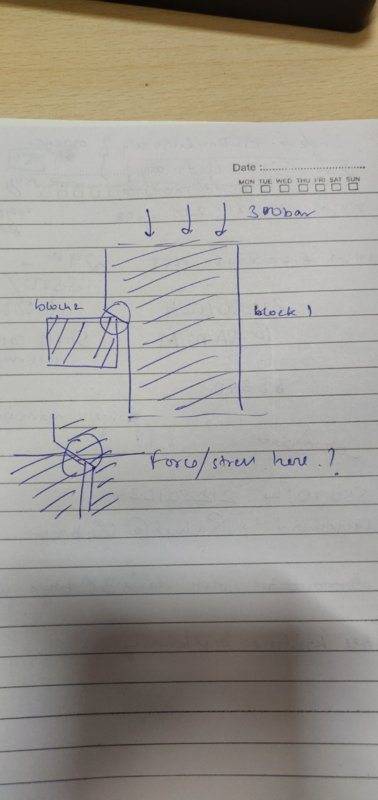 Date :
MON TUE WED THU FRI SAT SUN
300bar
block2
block 1
Force/stress here.?